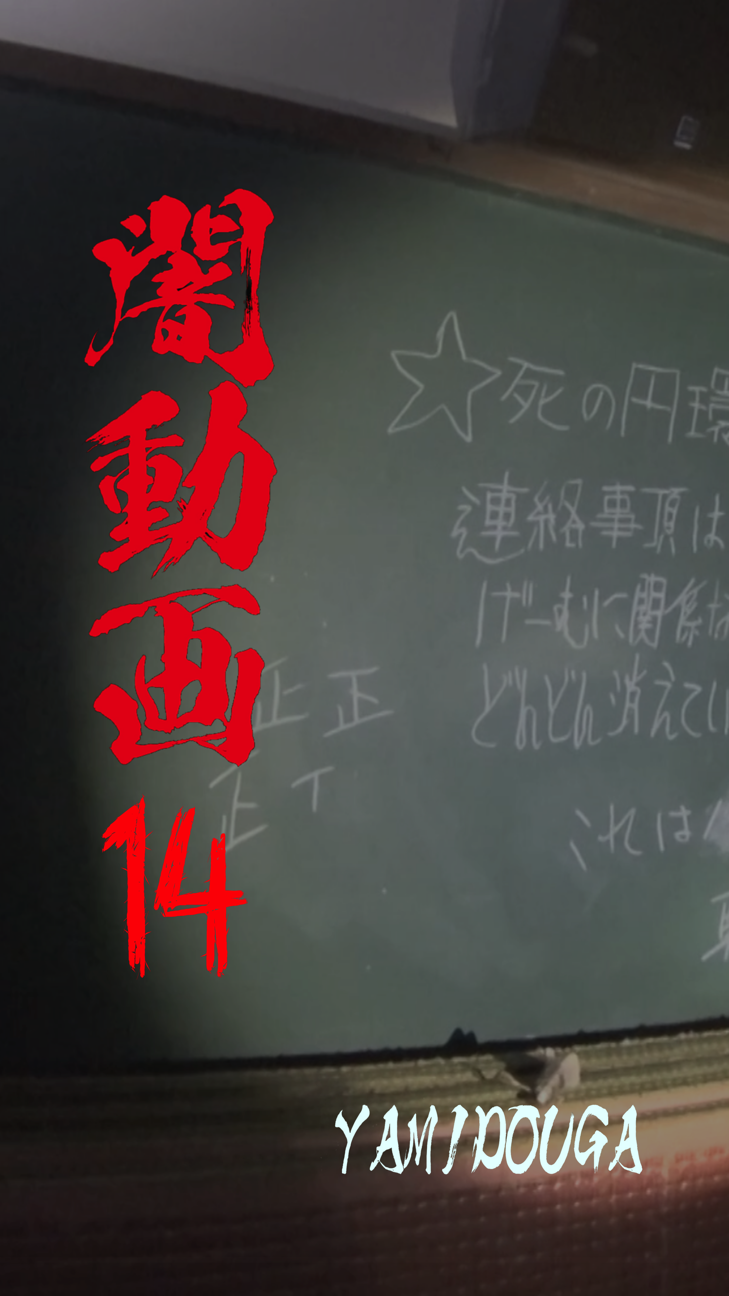 闇動画
14
☆死の円環
連絡事項は
げーむに関係
どんどん消えてい
正正
正丅
これは
YAMIDOUGA